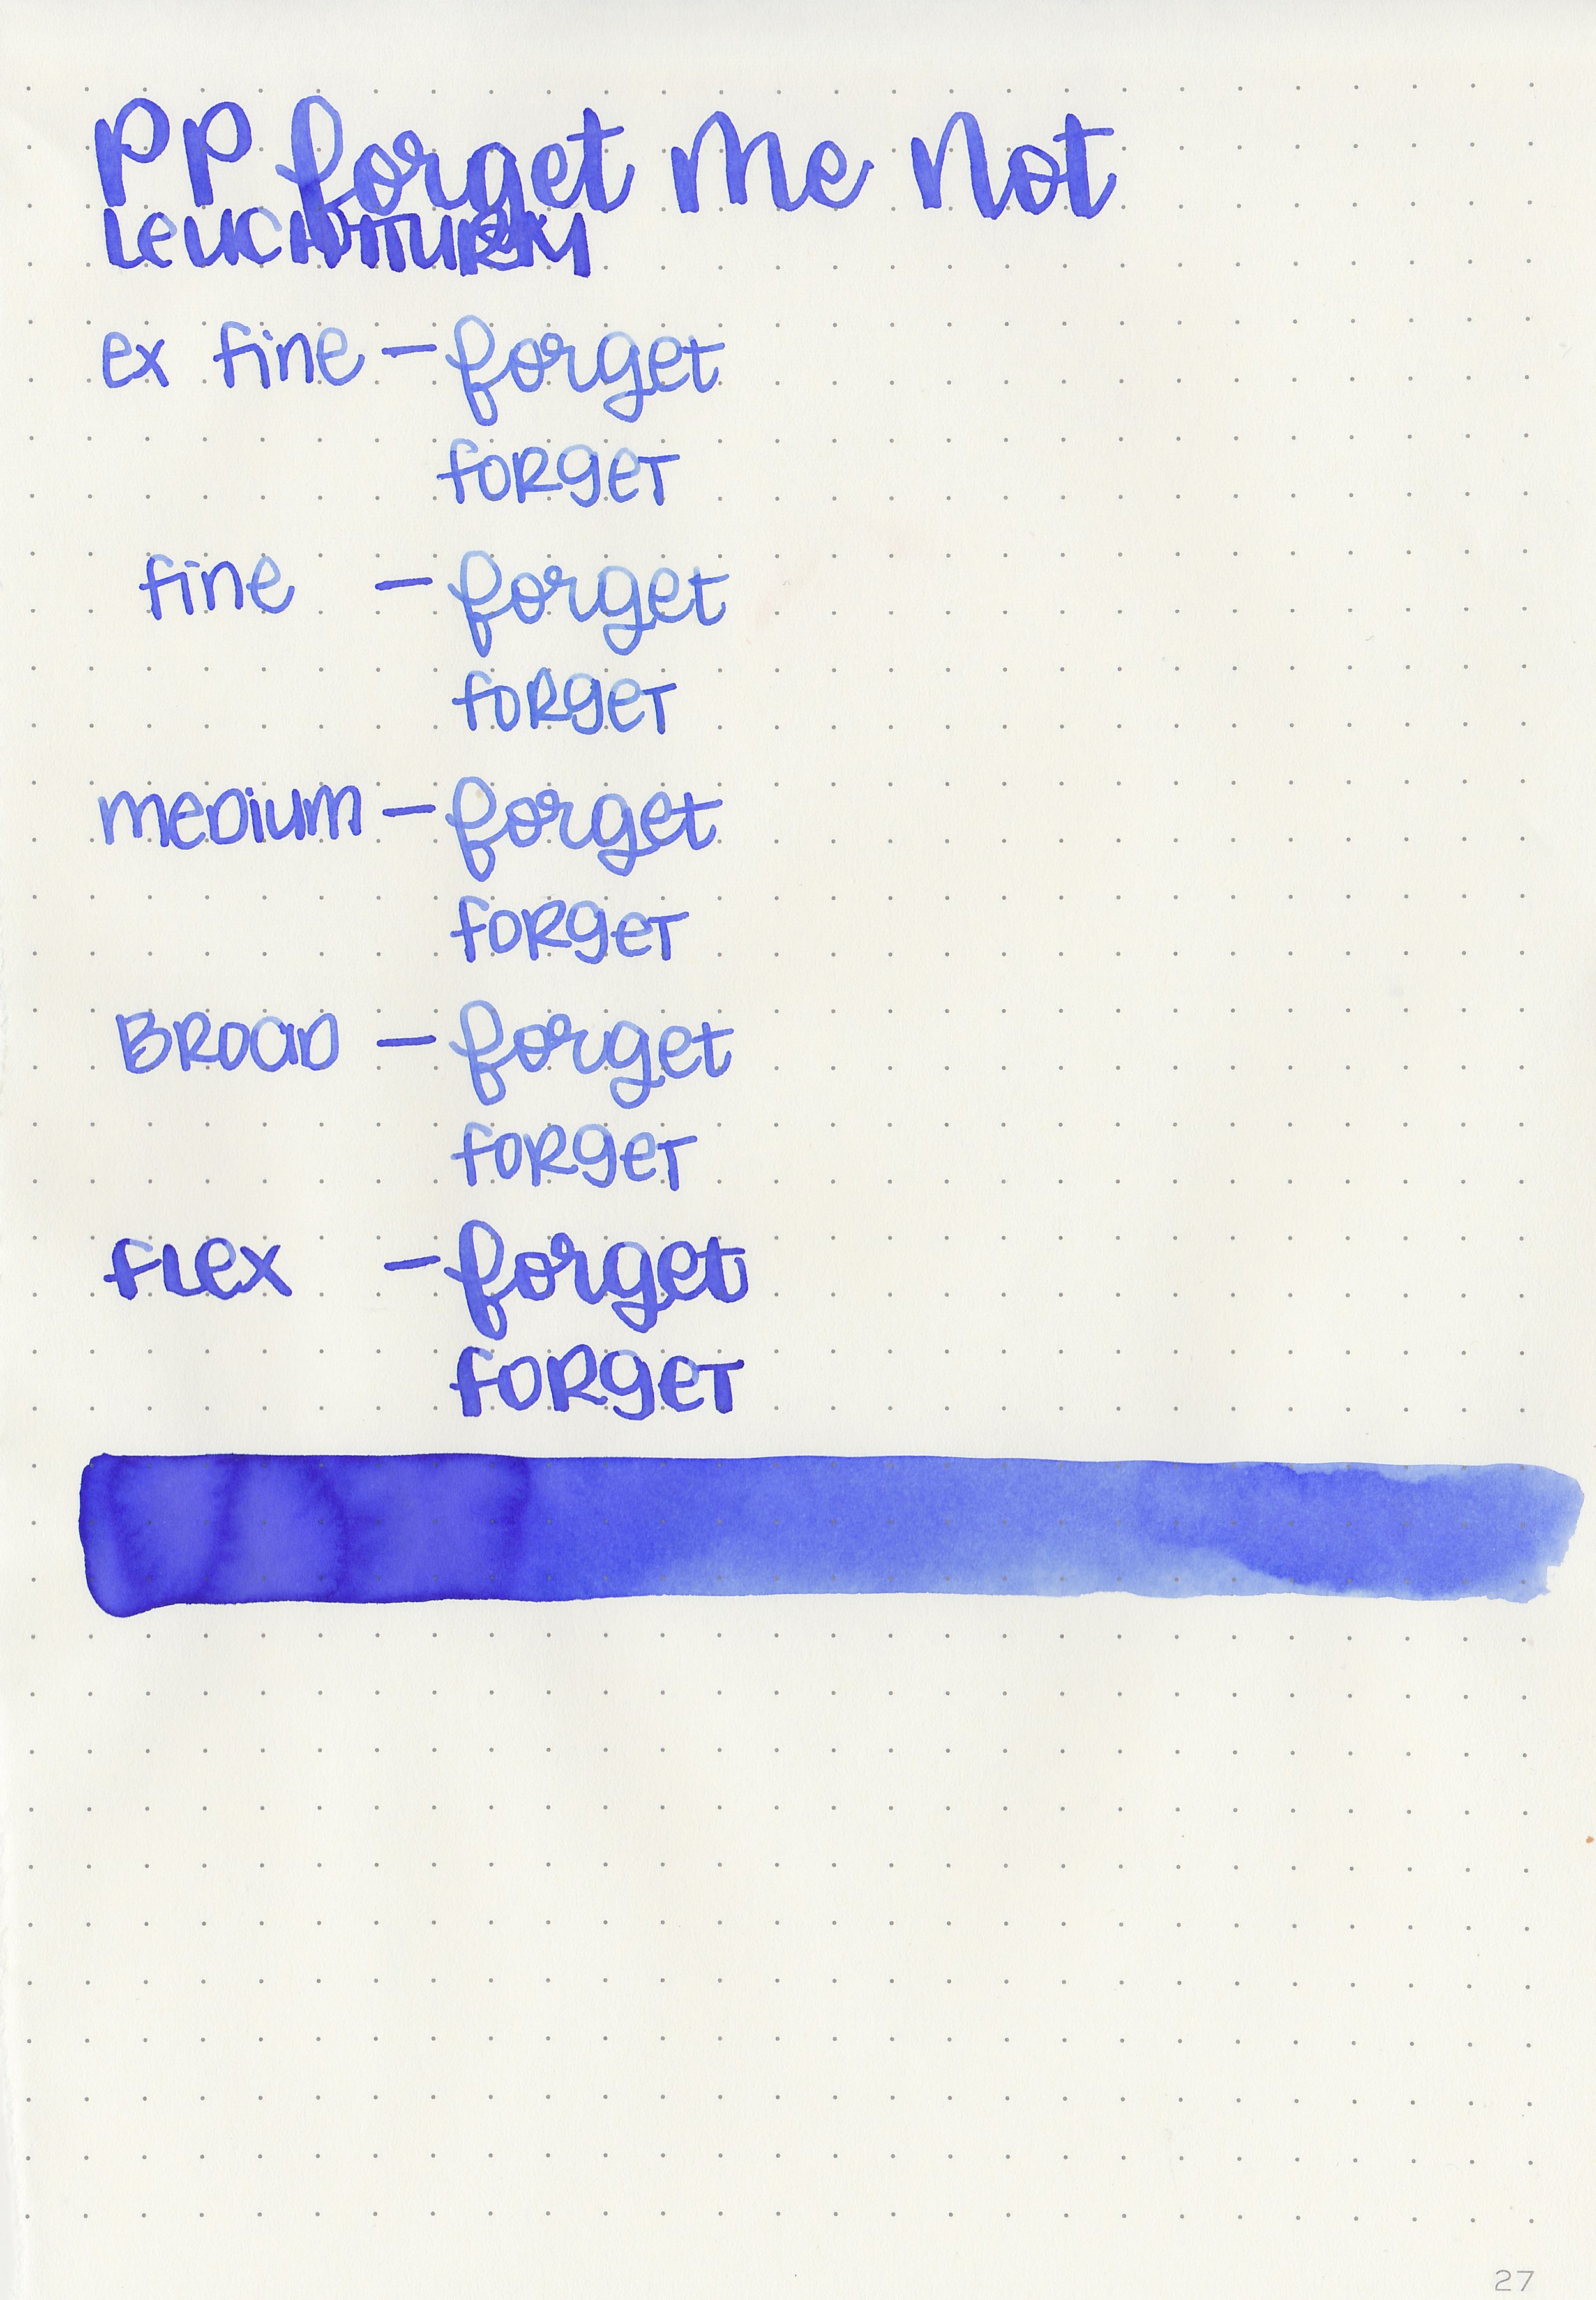 PP forget Me Not
LEUCHTTURM
ex fine - forget
forget
fine - forget
forget
medium - forget
forget
Broad - forget
forget
flex - forget
forget
27